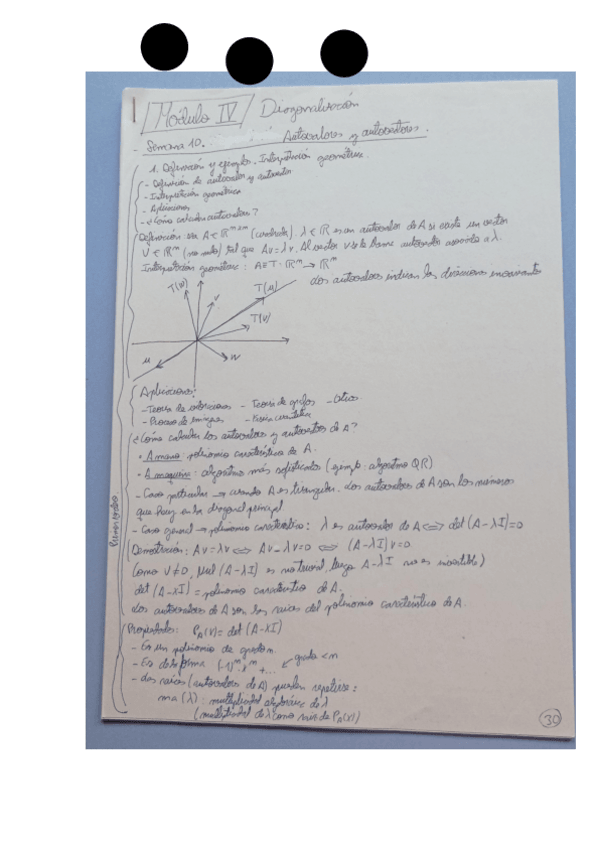 Módulo IV Diagonalización
- Semana 10. Autovalores y autovectores.
1. Definición y ejemplos. Interpretación geométrica.
- Definición de autovalor y autovector
- Interpretación geométrica
- Aplicaciones
- ¿Cómo calcular autovalores?
Definición: sea A ∈ ℝ (cuadrada). λ ∈ ℝ es un autovalor de A si existe un vector
V ∈ ℝᵐ (no nulo) tal que Av = λv. Al vector v se le llama autovector asociado a λ.
Interpretación geométrica: A≡T: ℝᵐ → ℝᵐ
Los autovectores indican las direcciones invariantes
T(w) v T(u)
T(v)
u w
Aplicaciones:
- Teoría de vibraciones - Teoría de grafos - Óptica
- Proceso de imágenes - Física cuántica
¿Cómo calcular los autovalores y autovectores de A?
• A mano: polinomio característico de A.
• A máquina: algoritmos más sofisticados (ejemplo: algoritmo QR)
- Caso particular → cuando A es triangular. Los autovalores de A son los números
que hay en la diagonal principal
- Caso general → polinomio característico: λ es autovalor de A ⟺ det (A-λI)=0
Demostración: Av=λv ⟺ Av-λv=0 ⟺ (A-λI)v=0
Como V≠0, (A-λI) es no trivial, luego A-λI no es invertible)
det (A-XI) = polinomio característico de A.
Los autovalores de A son las raíces del polinomio característico de A.
Propiedades: det (A-XI)
- Es un polinomio de grado n.
- Es de la forma grado < n
- Las raíces (autovalores de A) pueden repetirse:
ma(λ): multiplicidad algebraica de λ
(multiplicidad de λ como raíz de P_A(X))
30